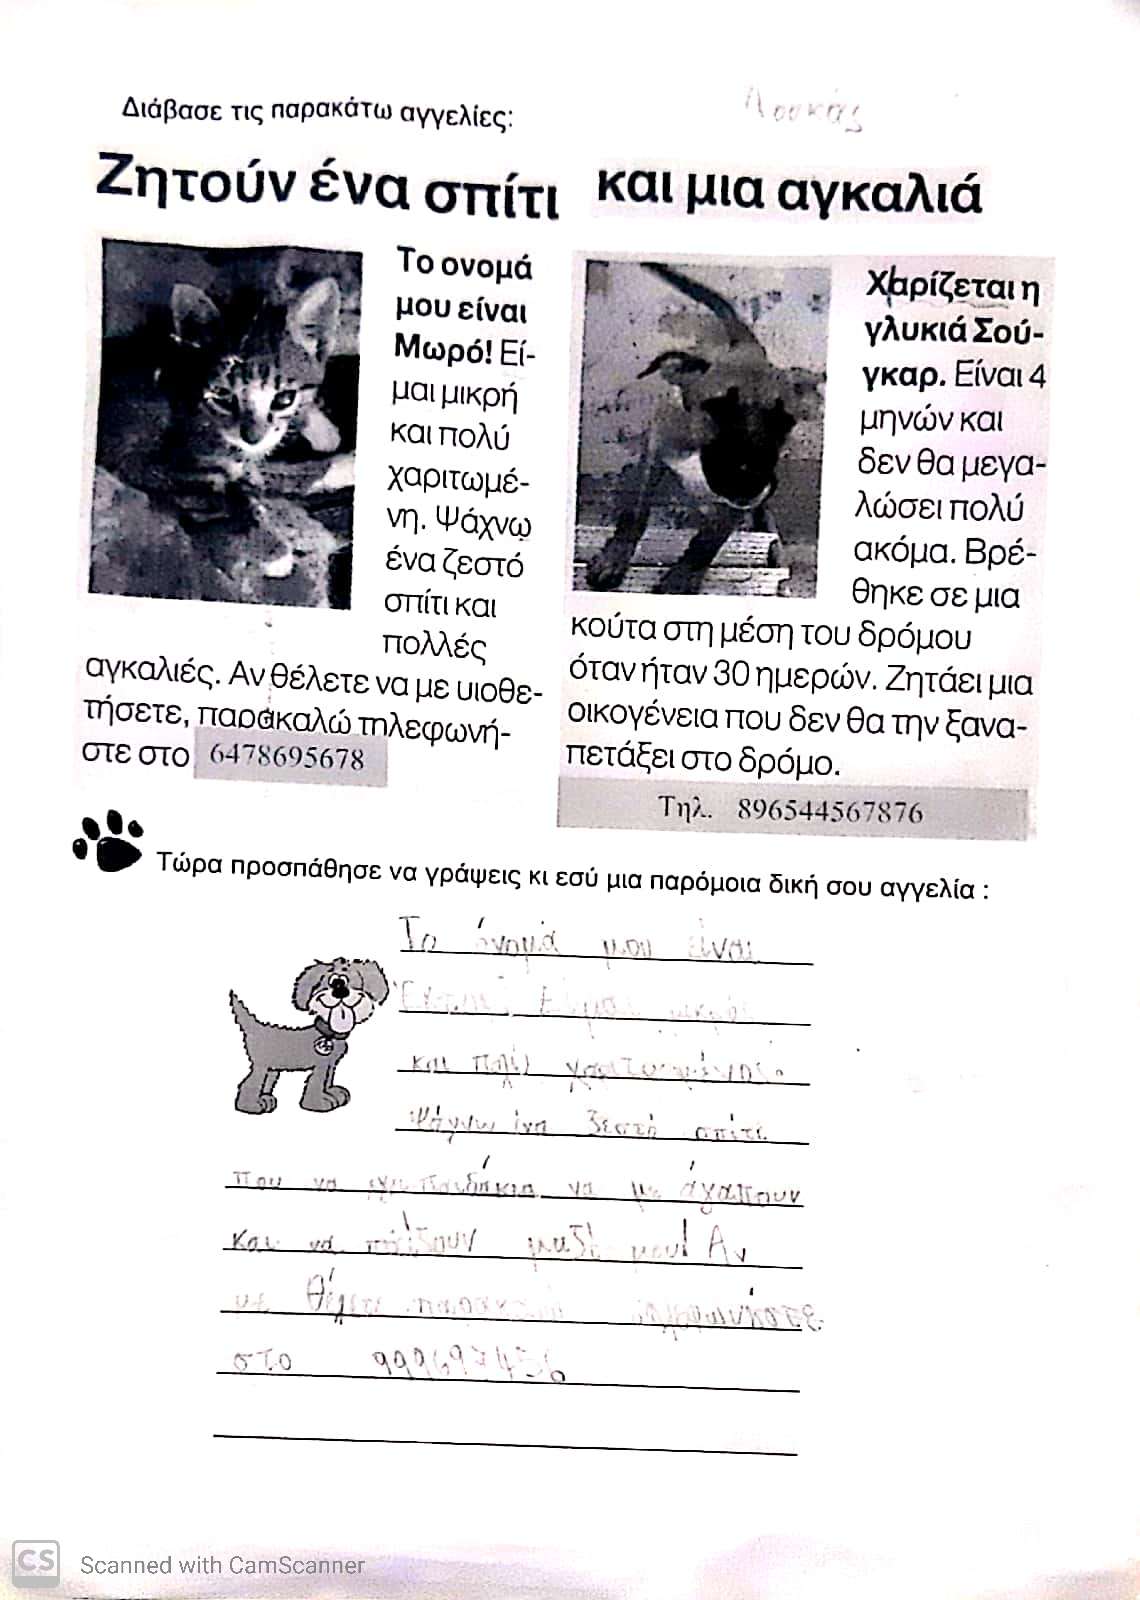 Διάβασε τις παρακάτω αγγελίες:
Λουκάς
Ζητούν ένα σπίτι και μια αγκαλιά
Το ονομά
μου είναι
Μωρό! Εί-
μαι μικρή
και πολύ
χαριτωμέ-
νη. Ψάχνω
ένα ζεστό
σπίτι και
πολλές
αγκαλιές. Αν θέλετε να με υιοθε-
τήσετε, παρακαλώ τηλεφωνή-
στε στο 6478695678
Χαρίζεται η
γλυκιά Σού-
γκαρ. Είναι 4
μηνών και
δεν θα μεγα-
λώσει πολύ
ακόμα. Βρέ-
θηκε σε μια
κούτα στη μέση του δρόμου
όταν ήταν 30 ημερών. Ζητάει μια
οικογένεια που δεν θα την ξανα-
πετάξει στο δρόμο.
Τηλ. 896544567876
Τώρα προσπάθησε να γράψεις κι εσύ μια παρόμοια δική σου αγγελία :
Το όνομά μου είναι
Είμαι μικρός
και πολύ χαριτωμένος.
Ψάχνω ένα ζεστό σπίτι
που να έχει παιδάκια να με άγαπουν
και να παίζουν μαζί μου! Αν
με θέλετε
στο 999697456
CS Scanned with CamScanner